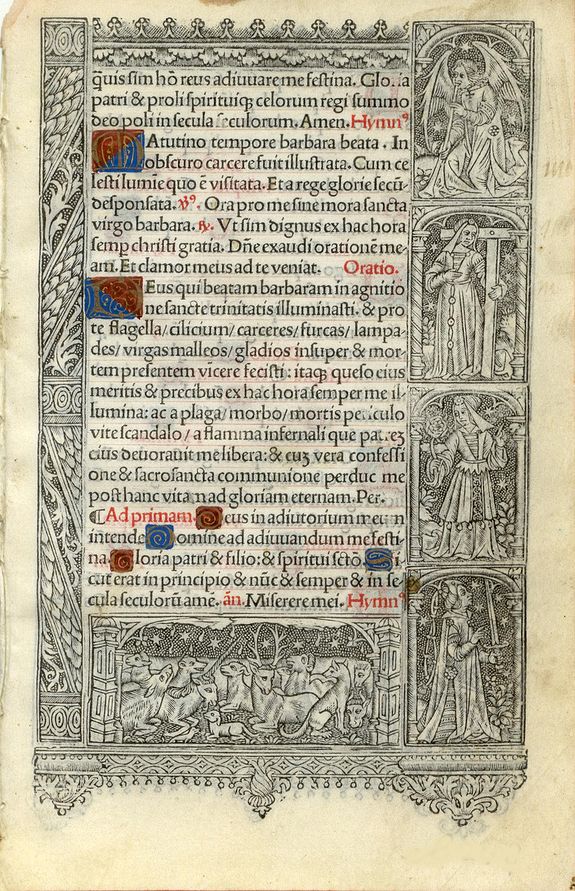 q̃uis sim hõ reus adiuuare me festina. Gloria
patri & proli spirituiq; celorum regi summo
deo poli in secula seculorum. Amen. Hymnꝰ
MAtutino tempore barbara beata . In
obscuro carcere fuit illustrata. Cum ce
lesti lumĩe quo ẽ visitata. Et a rege glorie secũ
desponsata. ℣ꝰ. Ora pro me sine mora sancta
virgo barbara. ℟. Vt sim dignus ex hac hora
semp christi gratia. Dñe exaudi orationẽ me-
am. Et clamor meus ad te veniat. Oratio.
DEus qui beatam barbaram in agnitio
ne sancte trinitatis illuminasti. & pro
te flagella/ cilicium/ carceres/ furcas/ lampa-
des/ virgas malleos/ gladios insuper & mor-
tem presentem vĩcere fecisti : itaq; queso eius
meritis & precibus ex hac hora semper me il-
lumina: ac a plaga/ morbo/ mortis periculo
vite scandalo/ a flamma infernali que patreʒ
eius deuorauit me libera: & cuʒ vera confessi
one & sacrosancta communione perduc me
post hanc vitam ad gloriam eternam. Per.
⸿Ad primam. Deus in adiutorium meum
intende Domine ad adiuuandum me festi
na. Gloria patri & filio: & spiritui scto. Si
cut erat in principio & nũc & semper & in se
cula seculorũ amẽ. ãn. Miserere mei. Hymnꝰ